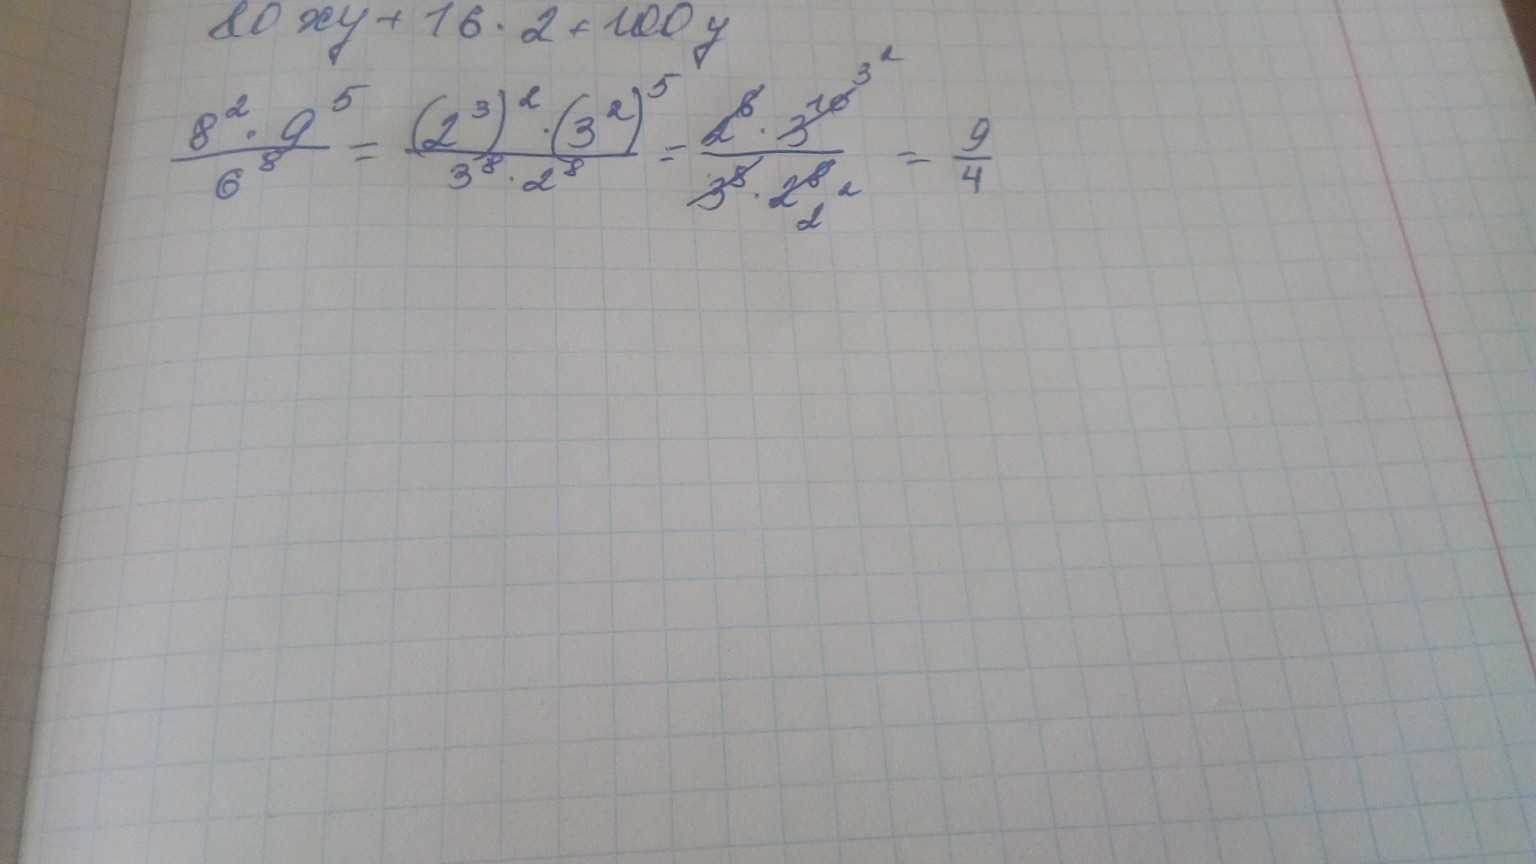 80xy+16·2+100y
8²·9⁵/6⁸ = (2³)²·(3²)⁵/3⁸·2⁸ = 2⁶·3¹⁰ 3²/3⁸·2⁸ 2² = 9/4